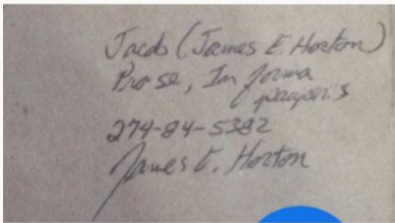 Jacob (James E. Horton)
Pro se, In forma
pauper's
274-84-5382
James E. Horton